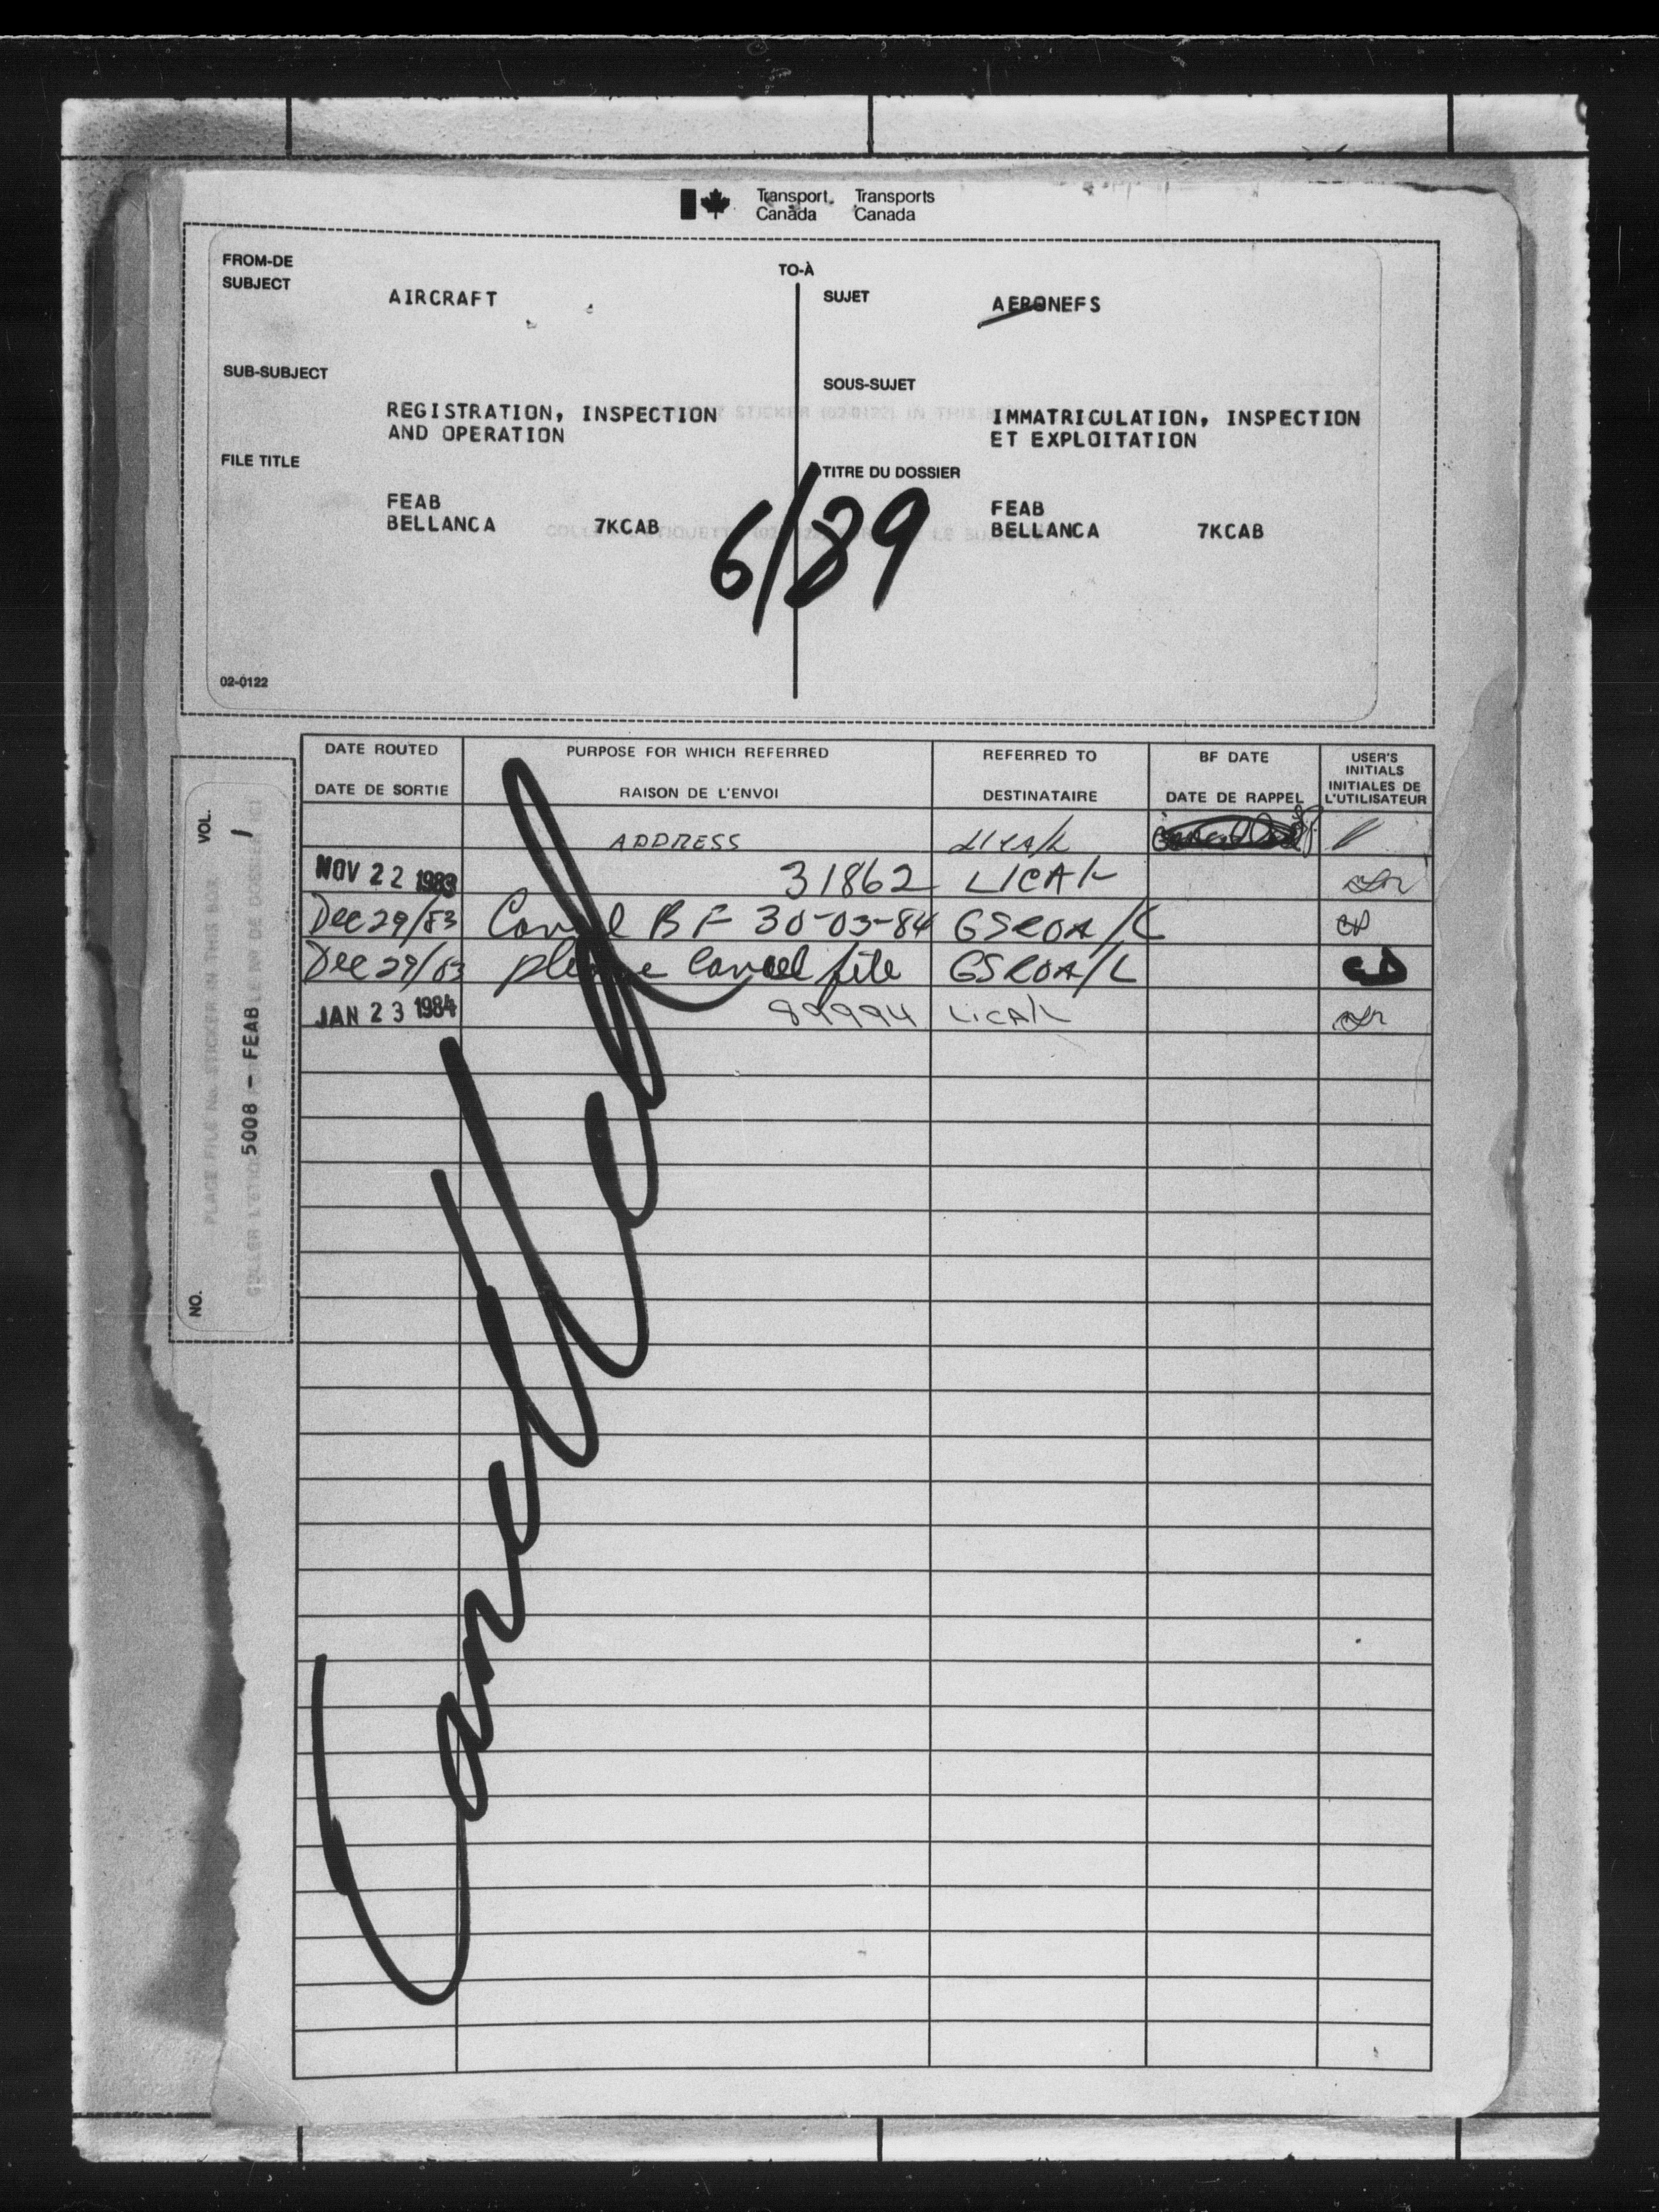 Transport Canada
Transports Canada
FROM-DE
TO-À
SUBJECT
AIRCRAFT
SUJET
AERONEFS
SUB-SUBJECT
REGISTRATION, INSPECTION
AND OPERATION
SOUS-SUJET
IMMATRICULATION, INSPECTION
ET EXPLOITATION
FILE TITLE
FEAB
BELLANCA 7KCAB
TITRE DU DOSSIER
FEAB
BELLANCA 7KCAB
6/89
02-0122
VOL. 1
PLACE FILE No. STICKER IN THIS BOX
5008 - FEAB
NO.
DATE ROUTED PURPOSE FOR WHICH REFERRED REFERRED TO BF DATE USER'S INITIALS
DATE DE SORTIE RAISON DE L'ENVOI DESTINATAIRE DATE DE RAPPEL INITIALES DE L'UTILISATEUR
ADDRESS
NOV 22 1983 31862 LICA/L
Dec 29/83 Cancel BF 30-03-84 GSROA/L
Dec 29/83 please Cancel file GSROA/L
JAN 23 1984 89994 LICA/L
Cancelled